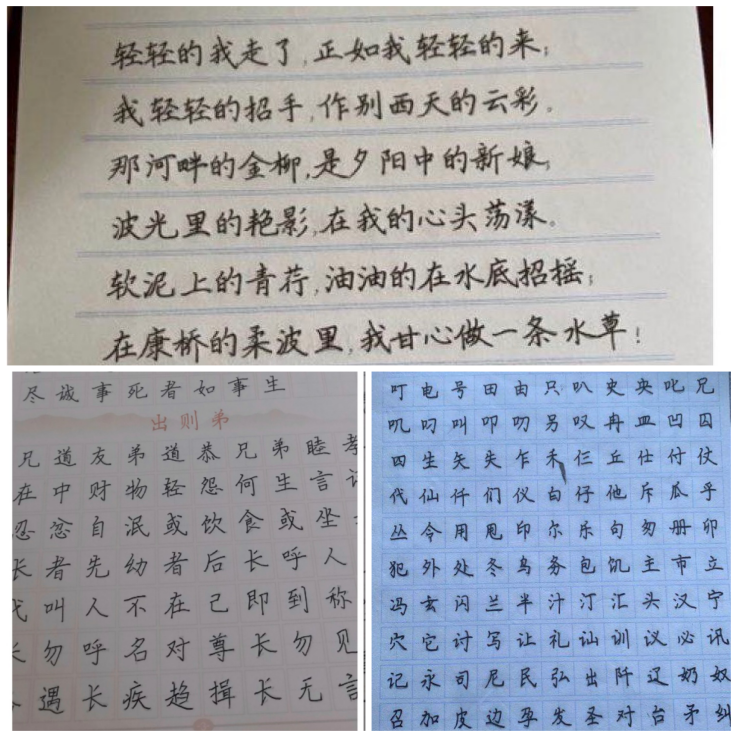 轻轻的我走了,正如我轻轻的来;
我轻轻的招手,作别西天的云彩。
那河畔的金柳,是夕阳中的新娘,
波光里的艳影,在我的心头荡漾。
软泥上的青荇,油油的在水底招摇;
在康桥的柔波里,我甘心做一条水草!
尽诚事死者如事生
出则弟
兄道友弟道恭兄弟睦孝
在中财物轻怨何生言
忍忿自泯或饮食或坐
长者先幼者后长呼人
代叫人不在己即到称
长勿呼名对尊长勿见
遇长疾趋揖长无言
叮电号田由只叭史央叱兄
叽叼叫叩叨另叹冉皿凹囚
四生矢失乍禾仨丘仕付仗
代仙仟们仪白仔他斥瓜乎
丛令用甩印尔乐句匆册卯
犯外处冬鸟务包饥主市立
冯玄闪兰半汁汀汇头汉宁
穴它讨写让礼讪训议必讯
记永司尼民弘出阡辽奶奴
召加皮边孕发圣对台矛纠